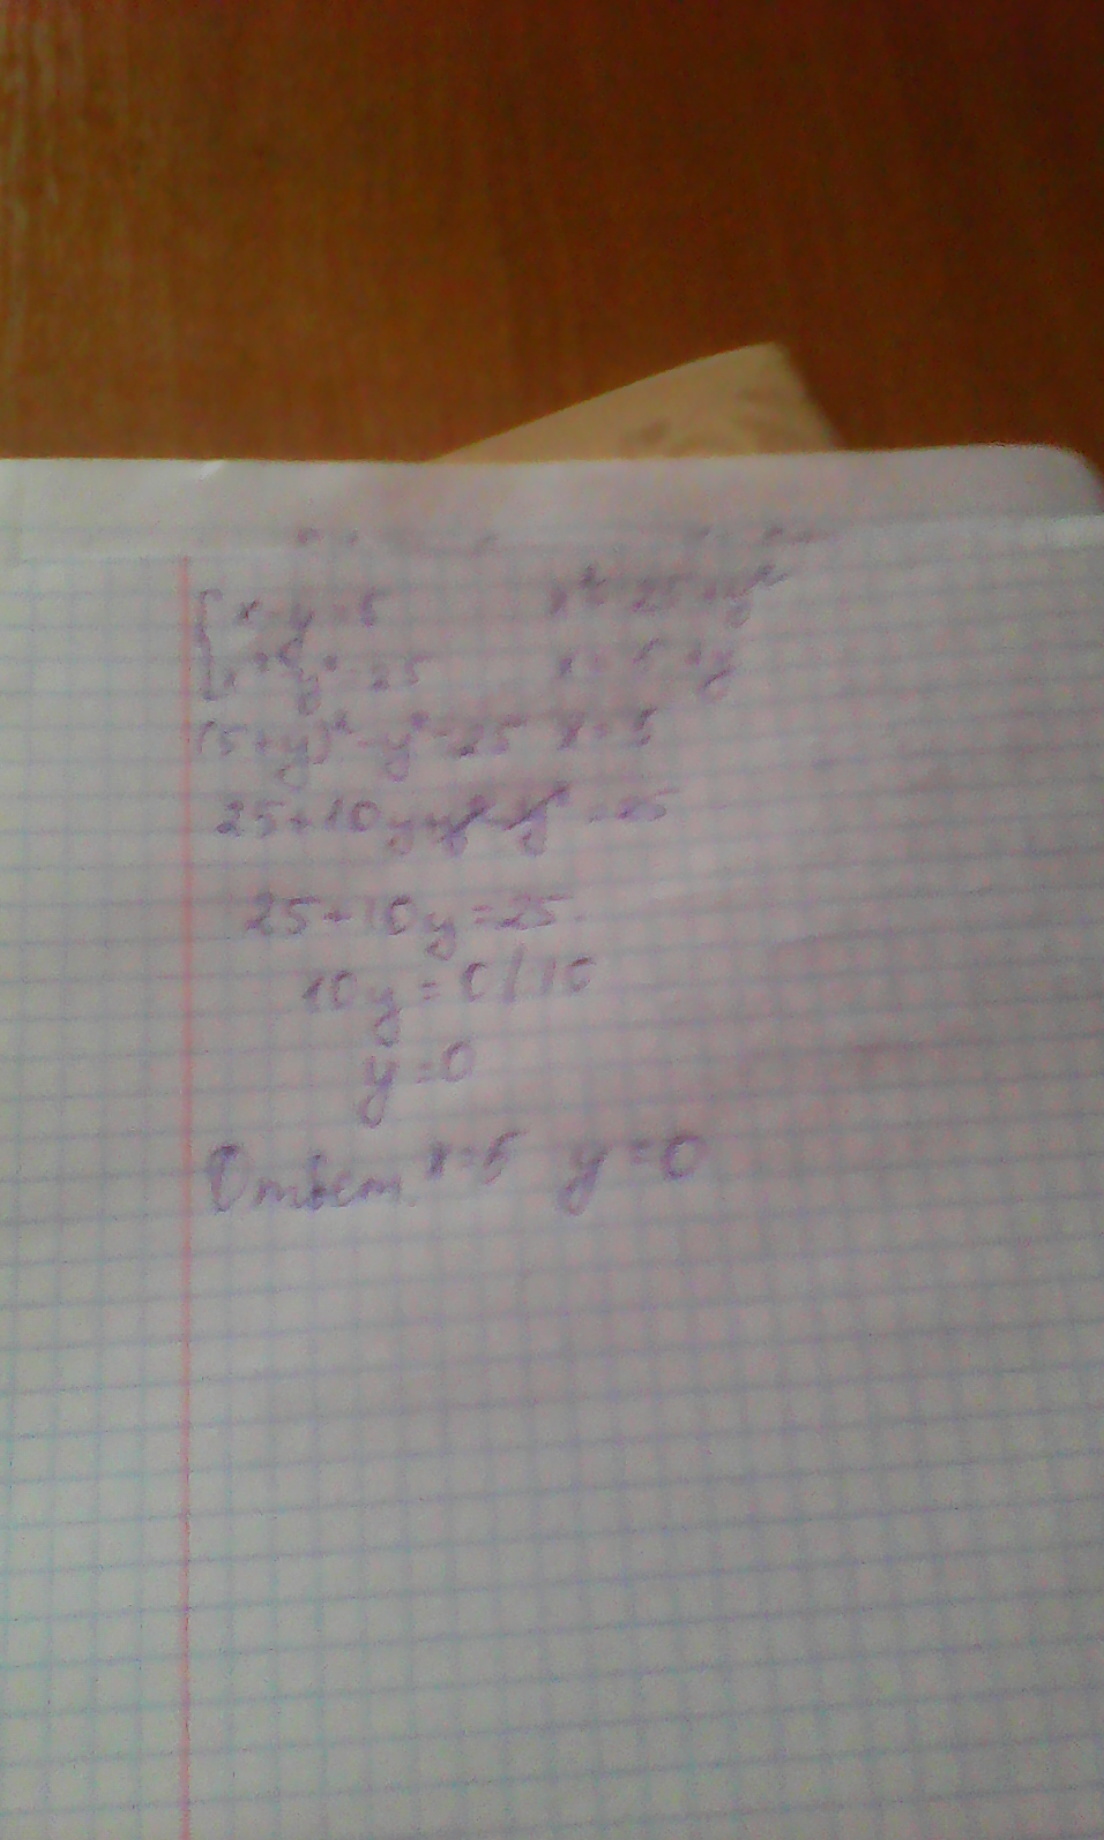 x-y=5 x²=25+y²
x²-y²=25 x=5+y
(5+y)²-y²=25 x=5
25+10y+y²-y²=25
25+10y=25
10y=0/10
y=0
Ответ x=5 y=0